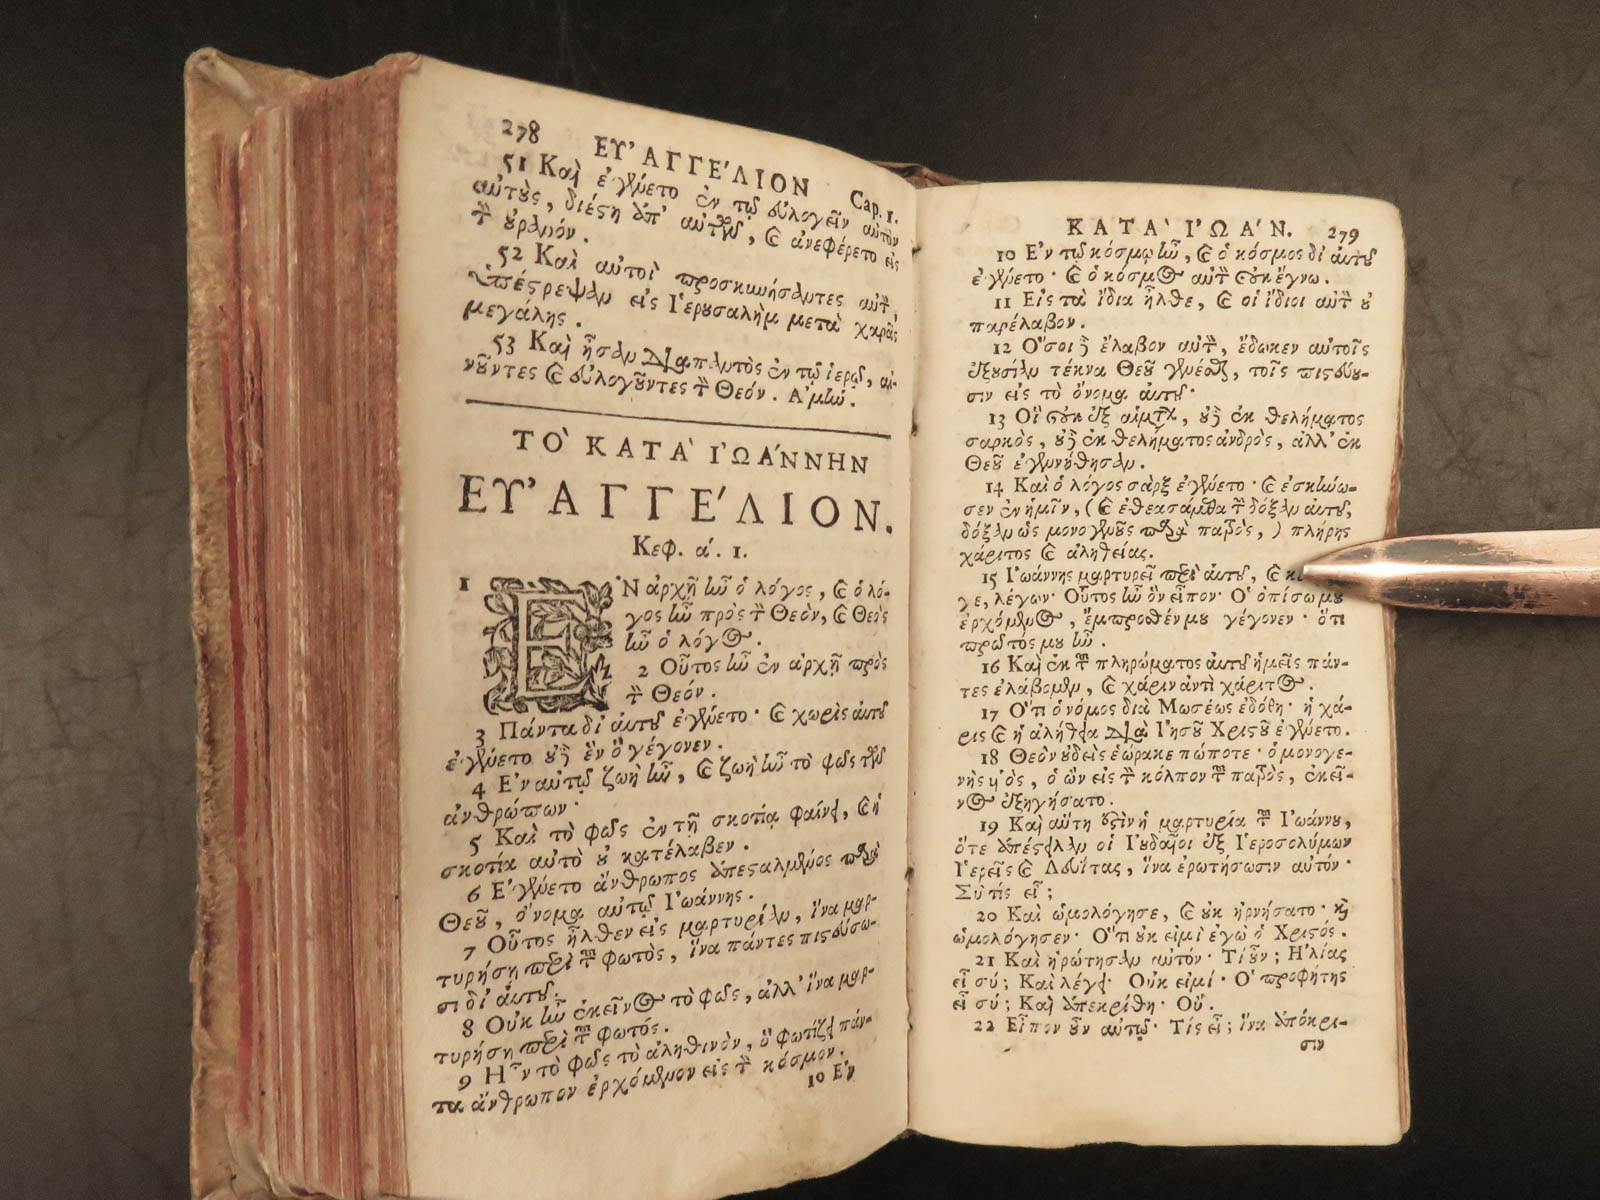 278 ΕΥ̓ΑΓΓΕ´ΛΙΟΝ Cap. 1.
51 Καὶ ἐγένετο ἐν τῷ εὐλογεῖν αὐτὸν
αὐτοὺς, διέστη ἀπ' αὐτῶν, καὶ ἀνεφέρετο εἰς
τὸν οὐρανόν.
52 Καὶ αὐτοὶ προσκυνήσαντες αὐτὸν,
ὑπέστρεψαν εἰς Ἱερουσαλὴμ μετὰ χαρᾶς
μεγάλης.
53 Καὶ ἦσαν διαπαντὸς ἐν τῷ ἱερῷ, αἰ-
νοῦντες καὶ εὐλογοῦντες τὸν Θεόν. Ἀμήν.
ΤΟ` ΚΑΤΑ` ἸΩΑ´ΝΝΗΝ
ΕΥ̓ΑΓΓΕ´ΛΙΟΝ.
Κεφ. ά. 1.
1 ἘΝ ἀρχῇ ἦν ὁ λόγος, καὶ ὁ λό-
γος ἦν πρὸς τὸν Θεὸν, καὶ Θεὸς
ἦν ὁ λόγος.
2 Οὗτος ἦν ἐν ἀρχῇ πρὸς
τὸν Θεόν.
3 Πάντα δι' αὐτοῦ ἐγένετο· καὶ χωρὶς αὐτοῦ
ἐγένετο οὐδὲ ἓν ὃ γέγονεν.
4 Ἐν αὐτῷ ζωὴ ἦν, καὶ ζωὴ ἦν τὸ φῶς τῶν
ἀνθρώπων·
5 Καὶ τὸ φῶς ἐν τῇ σκοτίᾳ φαίνει, καὶ ἡ
σκοτία αὐτὸ οὐ κατέλαβεν.
6 Ἐγένετο ἄνθρωπος ἀπεσταλμένος παρὰ
Θεοῦ, ὄνομα αὐτῷ Ἰωάννης.
7 Οὗτος ἦλθεν εἰς μαρτυρίαν, ἵνα μαρ-
τυρήσῃ περὶ τοῦ φωτὸς, ἵνα πάντες πιστεύσω-
σι δι' αὐτοῦ.
8 Οὐκ ἦν ἐκεῖνος τὸ φῶς, ἀλλ' ἵνα μαρ-
τυρήσῃ περὶ τοῦ φωτός.
9 Ἦν τὸ φῶς τὸ ἀληθινὸν, ὃ φωτίζει πάν-
τα ἄνθρωπον ἐρχόμενον εἰς τὸν κόσμον.
10 Ἐν
ΚΑΤΑ` ἸΩΑ´Ν. 279
10 Ἐν τῷ κόσμῳ ἦν, καὶ ὁ κόσμος δι' αὐτοῦ
ἐγένετο· καὶ ὁ κόσμος αὐτὸν οὐκ ἔγνω.
11 Εἰς τὰ ἴδια ἦλθε, καὶ οἱ ἴδιοι αὐτὸν οὐ
παρέλαβον.
12 Ὅσοι δὲ ἔλαβον αὐτὸν, ἔδωκεν αὐτοῖς
ἐξουσίαν τέκνα Θεοῦ γενέσθαι, τοῖς πιστεύου-
σιν εἰς τὸ ὄνομα αὐτοῦ·
13 Οἳ οὐκ ἐξ αἱμάτων, οὐδὲ ἐκ θελήματος
σαρκὸς, οὐδὲ ἐκ θελήματος ἀνδρὸς, ἀλλ' ἐκ
Θεοῦ ἐγεννήθησαν.
14 Καὶ ὁ λόγος σὰρξ ἐγένετο· καὶ ἐσκήνω-
σεν ἐν ἡμῖν, (καὶ ἐθεασάμεθα τὴν δόξαν αὐτοῦ,
δόξαν ὡς μονογενοῦς παρὰ πατρὸς,) πλήρης
χάριτος καὶ ἀληθείας.
15 Ἰωάννης μαρτυρεῖ περὶ αὐτοῦ, καὶ
γε, λέγων· Οὗτος ἦν ὃν εἶπον· Ὁ ὀπίσω μου
ἐρχόμενος, ἔμπροσθέν μου γέγονεν· ὅτι
πρῶτός μου ἦν.
16 Καὶ ἐκ τοῦ πληρώματος αὐτοῦ ἡμεῖς πάν-
τες ἐλάβομεν, καὶ χάριν ἀντὶ χάριτος.
17 Ὅτι ὁ νόμος διὰ Μωσέως ἐδόθη· ἡ χά-
ρις καὶ ἡ ἀλήθεια διὰ Ἰησοῦ Χριστοῦ ἐγένετο.
18 Θεὸν οὐδεὶς ἑώρακε πώποτε· ὁ μονογε-
νὴς υἱὸς, ὁ ὢν εἰς τὸν κόλπον τοῦ πατρὸς, ἐκεῖ-
νος ἐξηγήσατο.
19 Καὶ αὕτη ἐστὶν ἡ μαρτυρία τοῦ Ἰωάννου,
ὅτε ἀπέστειλαν οἱ Ἰουδαῖοι ἐξ Ἱεροσολύμων
Ἱερεῖς καὶ Λευΐτας, ἵνα ἐρωτήσωσιν αὐτόν·
Σὺ τίς εἶ;
20 Καὶ ὡμολόγησε, καὶ οὐκ ἠρνήσατο· καὶ
ὡμολόγησεν· Ὅτι οὐκ εἰμὶ ἐγὼ ὁ Χριστός.
21 Καὶ ἠρώτησαν αὐτόν· Τί οὖν; Ἠλίας
εἶ σύ; Καὶ λέγει· Οὐκ εἰμί· Ὁ προφήτης
εἶ σύ; Καὶ ἀπεκρίθη· Οὔ.
22 Εἶπον οὖν αὐτῷ· Τίς εἶ; ἵνα ἀπόκρι-
σιν